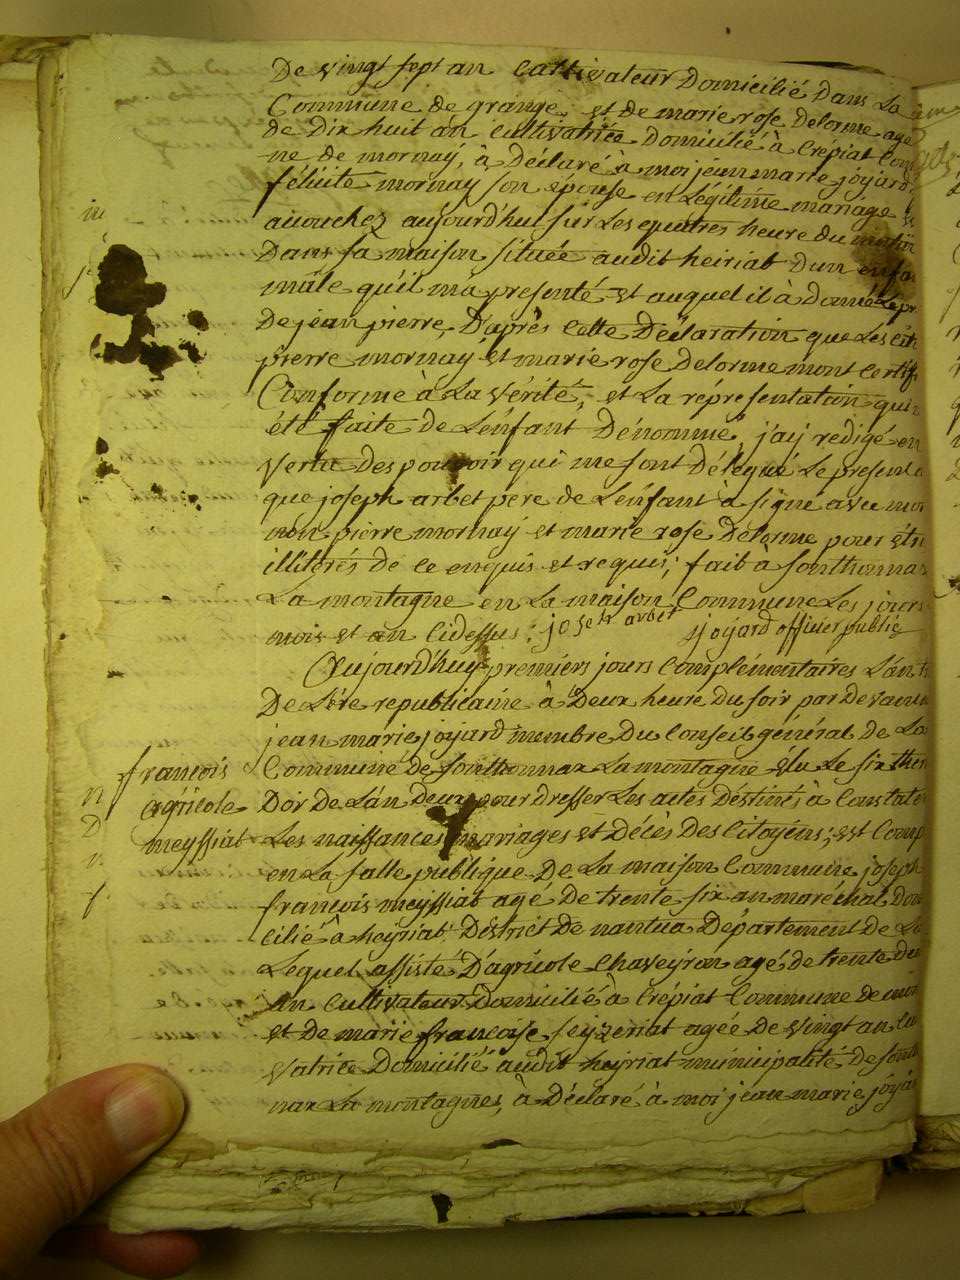 De vingt sept an Cultivateur Domicilié Dans La
Commune de grange, et de marie rose delorme age
de Dix huit an Cultivatrice Domicilié à Crépiat Com
ne de mornaÿ, à Déclaré à moi jean marie joÿard
félicité mornaÿ son épouse en Légitime mariage
auouchez aujourd'hui sur Les quatres heure du matin
Dans sa maison située audit heiriat Dun enfa
mâle quil ma presenté et auquel il à donné Le pr
De jean pierre, D'après Cette Déclaration que Les cit
pierre mornaÿ et marie rose delorme mont certif
Conforme à La Vérité, et La répresentation qui
été faite de Lenfant Dénommé, j'aÿ redigé en
Vertu Des pouvoir qui me sont Délegué Le present
que joseph arbet pere de Lenfant à signé avec moi
non pierre mornaÿ et marie rose Delorme pour étr
illitérés de ce enquis et requis; fait à sonthonnax
La montagne en La maison Commune Les jours
mois et an Cidessus; joseh arbet joÿard officier public
Aujourd'huÿ premiers jours Complémentaires Lan
De Lére republicaine à Deux heure du soir par devan
jean marie joÿard membre Du Conseil général de La
Commune de sonthonnax La montagne élu Le six ther
françois
agricole
meÿssiat
Dor De Lan Deux pour dresser Les actes Déstinés à Constater
Les naissances mariages et Décès Des Citoyens; est Comp
en La salle publique De La maison Commune joseph
françois meÿssiat agé De trente six an maréchal Dom
cilié à heÿriat District De nantua Département de L
Lequel assisté D'agricole Chaveyron agé de trente du
an Cultivateur Domicilié à Crépiat Commune de mor
et De marie françoise seÿzeriat agée De vingt an cu
vatrice Domicilié audit heÿriat municipalité De sont
nax La montagnes, à Déclaré à moi jean marie joÿar